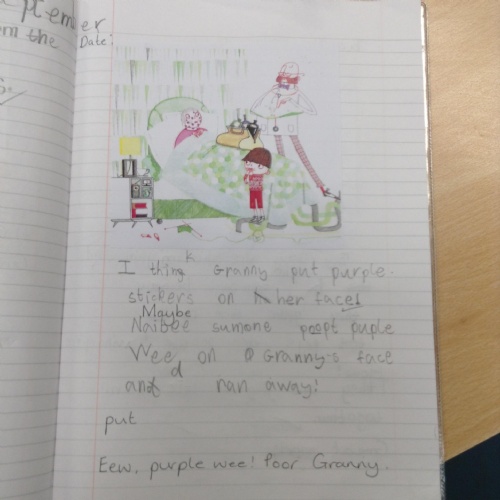 ptember
em the
Date:
I thingk Granny put purple
stickers on her face!
Maybe
Naibee sumone poopt puple
Wee on Granny's face
and ran away!
put
Eew, purple wee! Poor Granny.